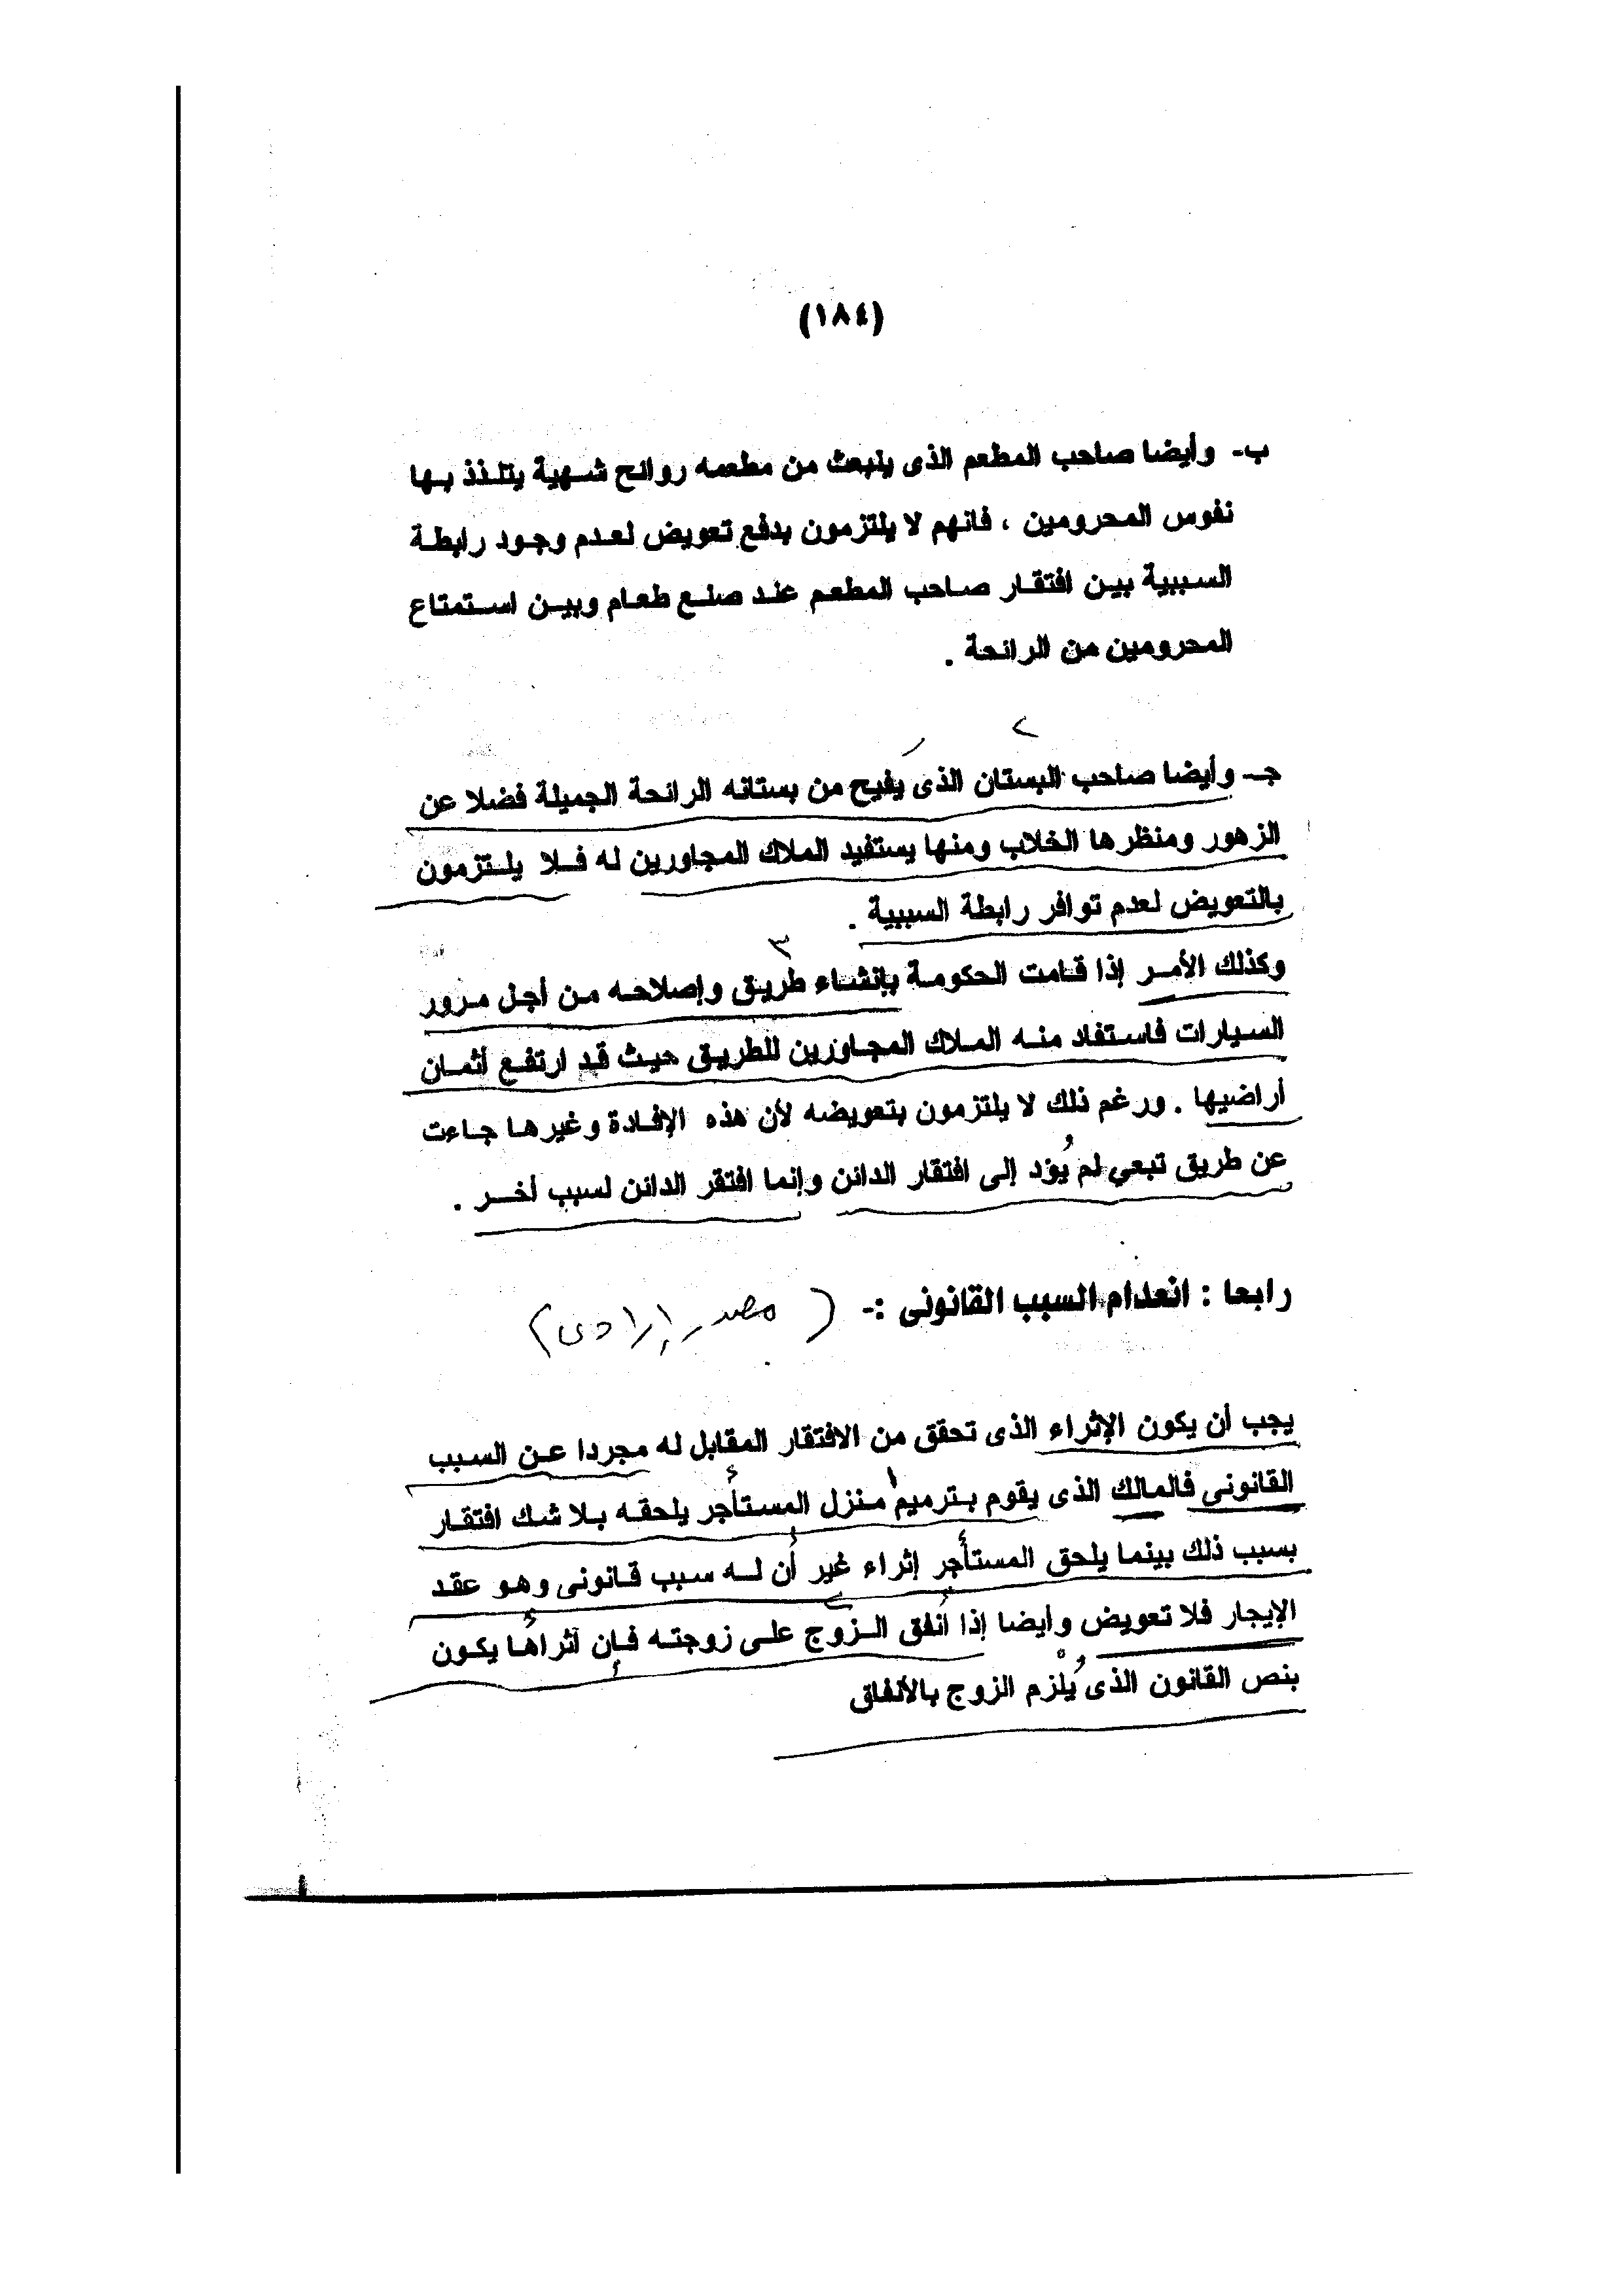 (١٨٤)
ب- وأيضا صاحب المطعم الذى ينبعث من مطعمه روائح شهية يتلذذ بها
نفوس المحرومين ، فانهم لا يلتزمون بدفع تعويض لعدم وجود رابطة
السببية بين افتقار صاحب المطعم عند صنع طعام وبين استمتاع
المحرومين من الرائحة .
٢
جـ- وأيضا صاحب البستان الذى يفيح من بستانه الرائحة الجميلة فضلا عن
الزهور ومنظرها الخلاب ومنها يستفيد الملاك المجاورين له فلا يلتزمون
بالتعويض لعدم توافر رابطة السببية .
٣
وكذلك الأمر إذا قامت الحكومة بإنشاء طريق وإصلاحه من أجل مرور
السيارات فاستفاد منه الملاك المجاورين للطريق حيث قد ارتفع أثمان
أراضيها . ورغم ذلك لا يلتزمون بتعويضه لأن هذه الإفادة وغيرها جاءت
عن طريق تبعي لم يُؤد إلى افتقار الدائن وإنما افتقر الدائن لسبب أخر .
رابعا : انعدام السبب القانونى :- (مصدر إرادى)
يجب أن يكون الإثراء الذى تحقق من الافتقار المقابل له مجردا عن السبب
القانونى فالمالك الذى يقوم بترميم منزل المستأجر يلحقه بلا شك افتقار
بسبب ذلك بينما يلحق المستأجر إثراء غير أن له سبب قانونى وهو عقد
الإيجار فلا تعويض وأيضا إذا أنفق الزوج على زوجته فإن أثراها يكون
بنص القانون الذى يُلْزم الزوج بالأنفاق